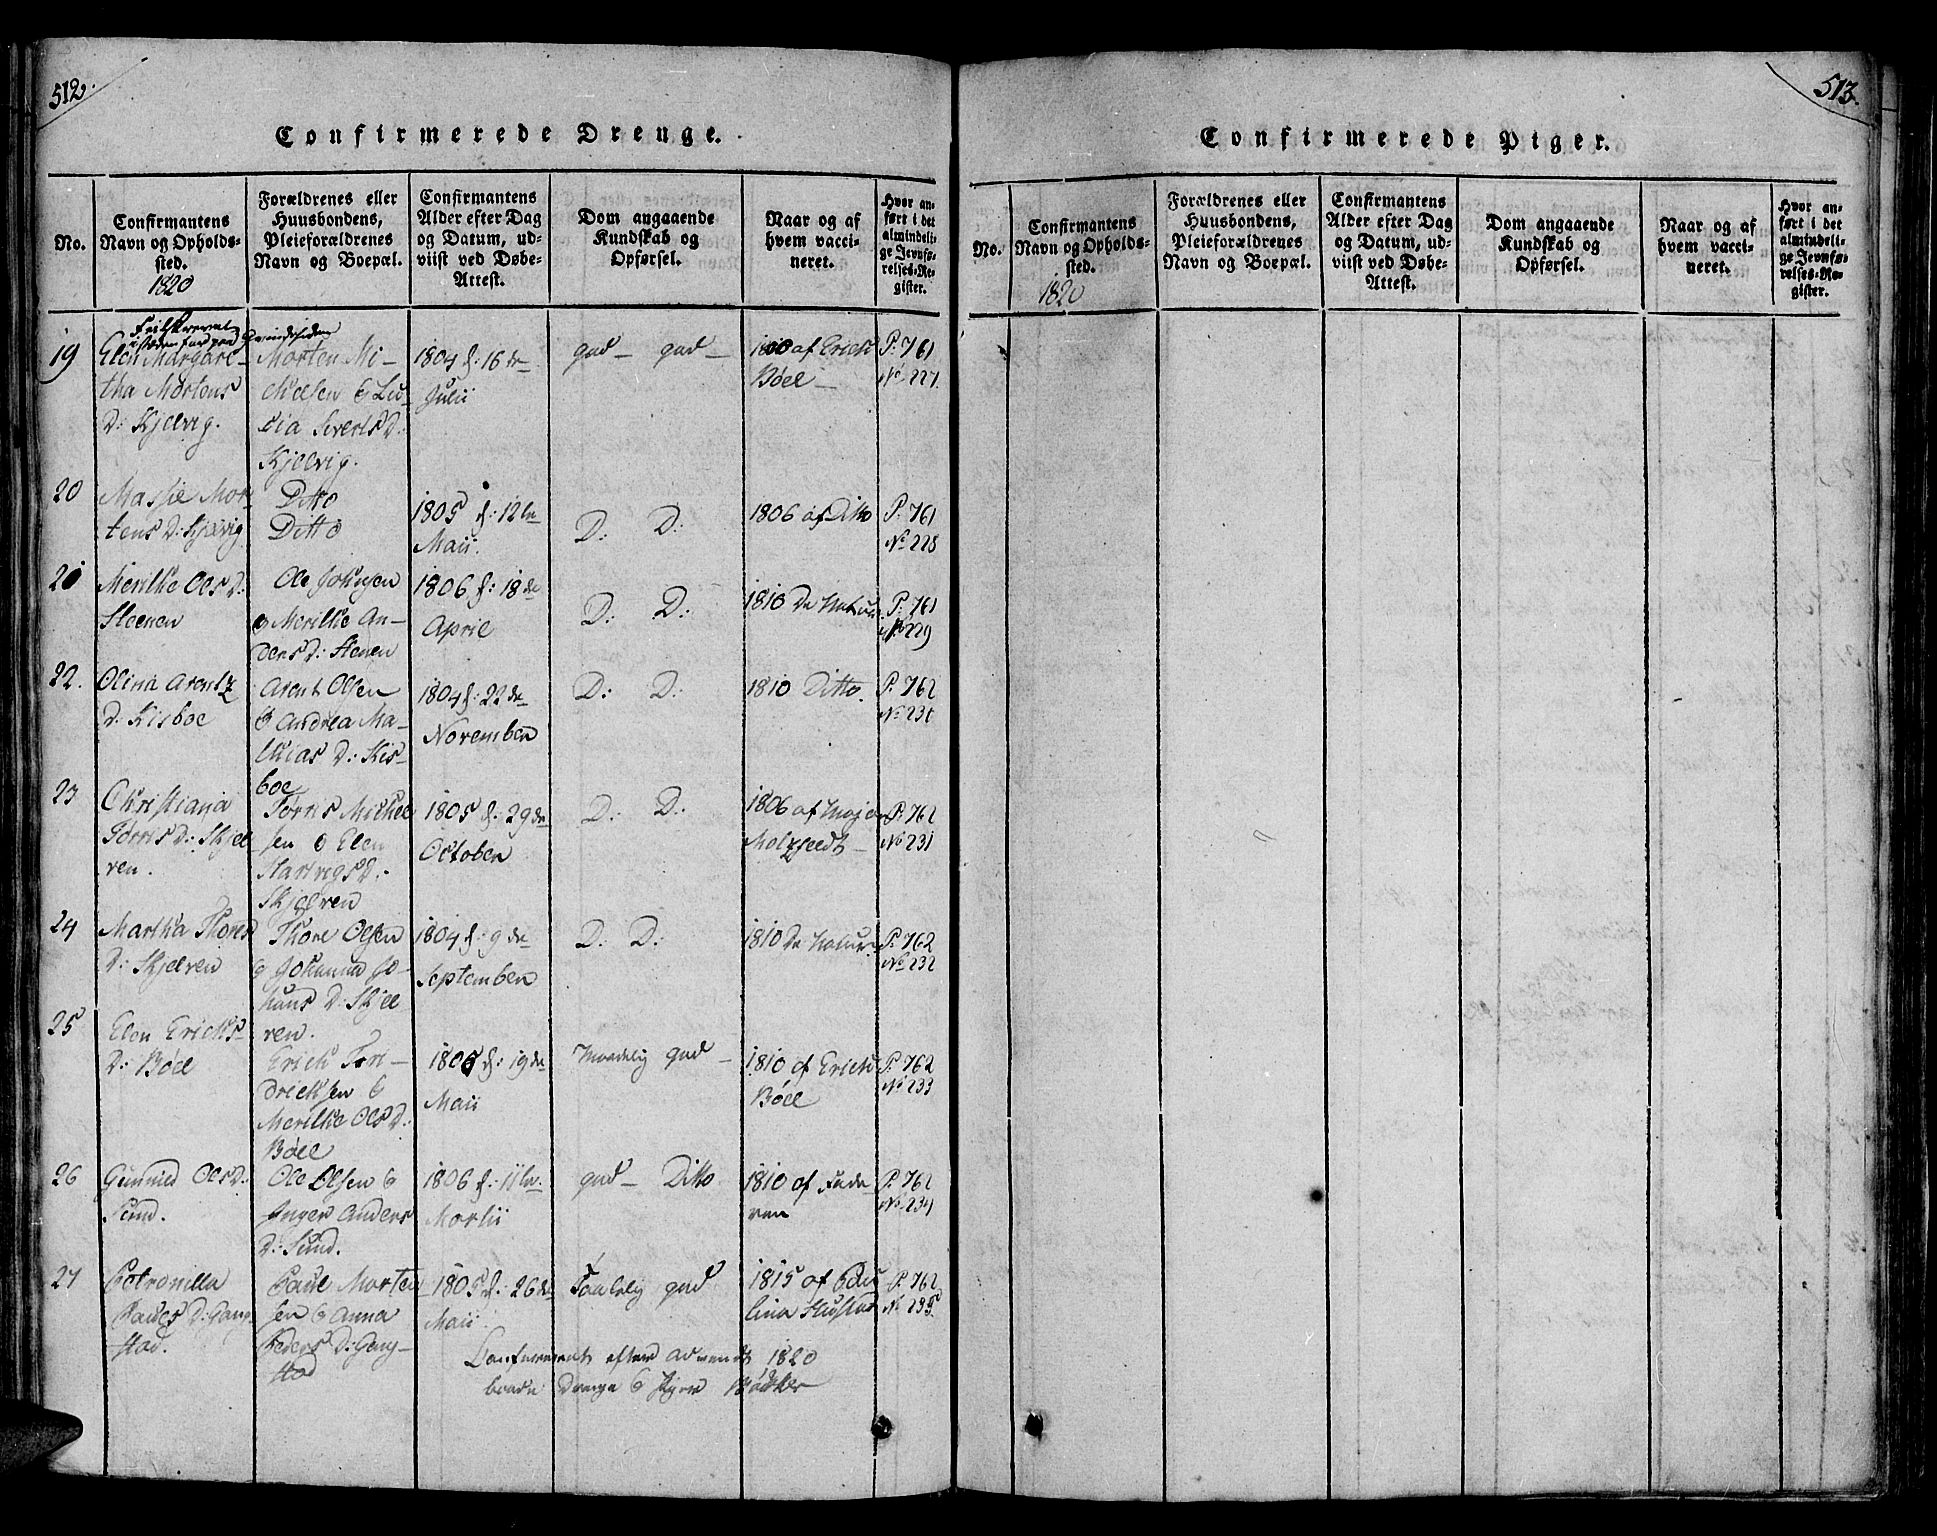 512.
Confirmerede Drenge.
No.
Confirmantens
Navn og Opholds-
sted.
1820
Forældrenes eller
Huusbondens,
Pleieforældrenes
Navn og Boepæl.
Confirmantens
Alder efter Dag
og Datum, ud-
viist ved Døbe-
Attest.
Dom angaaende
Kundskab og
Opførsel.
Naar og af
hvem vacci-
neret.
Hvor an-
ført i det
almindeli-
ge Jevnfø-
relses-Re-
gister.
19
Elen Margare-
tha Mortens
D: Kjelvig.
Morten Mi-
chelsen & Lu-
cia Siverts D:
Kjelvig.
1804 d: 16de
Julii
god – god –
1800 af Erich
Böel –
P: 761
No 227.
20
Massie Mor-
tens D: Kjelvig
Ditto
Ditto
1805 d: 12te
Maii.
D: D:
1806 af Ditto
P: 761
No 228
21
Merethe Ols D:
Steenen
Ole Johnsen
& Merethe An-
ders D: Stenen
1806 d: 18de
April
D: D:
1810 De Natur
P: 761
No 229
22.
Olina Arentz
D: Kisboe
Arent Olsen
& Andrea Ma-
thias D: Kis-
boe
1804 d: 22de
November
D: D:
1810 Ditto.
P: 762
No 230
23
Christiana
Törris D: Skjel-
ven.
Törris Michel
sen & Elen
Hartvigs D:
Skjelven
1805 d: 29de
October
D: D:
1806 af Major
Moltzfeldt –
P: 762
No 231
24
Martha Thores
D: Skjelven
Thore Olsen
& Johanna Jo-
hans D: Skjel
ven.
1804 d: 9de
September
D: D:
1810 De Natur
P: 762
No 232
25
Elen Erichs
D: Böel
Erich
drichsen &
Merethe Ols D:
Böel
1805 d: 19de
Maii
Maadelig god –
1810 af Erich
Böel
P: 762
No 233
26
Gunnild Ols D:
Sund.
Ole Olsen &
Inger Anders
D: Sund.
1806 d: 11te
Martii
god – Ditto
1810 af Fade-
ren
P: 762
No 234
27
Petronilla
Pauls D: Gang-
stad.
Paul Morten
sen & Anna
Peders D: Gang-
stad
1805 d: 26de
Maii
Taalelig god
1815 af Pau
lina Hustad
P: 762
No 235
1820
513.
Confirmerede Piger.
No.
Confirmantens
Navn og Opholds-
sted.
1820
Forældrenes eller
Huusbondens,
Pleieforældrenes
Navn og Boepæl.
Confirmantens
Alder efter Dag
og Datum, ud-
viist ved Døbe-
Attest.
Dom angaaende
Kundskab og
Opførsel.
Naar og af
hvem vacci-
neret.
Hvor an-
ført i det
almindeli-
ge Jevnfø-
relses-Re-
gister.